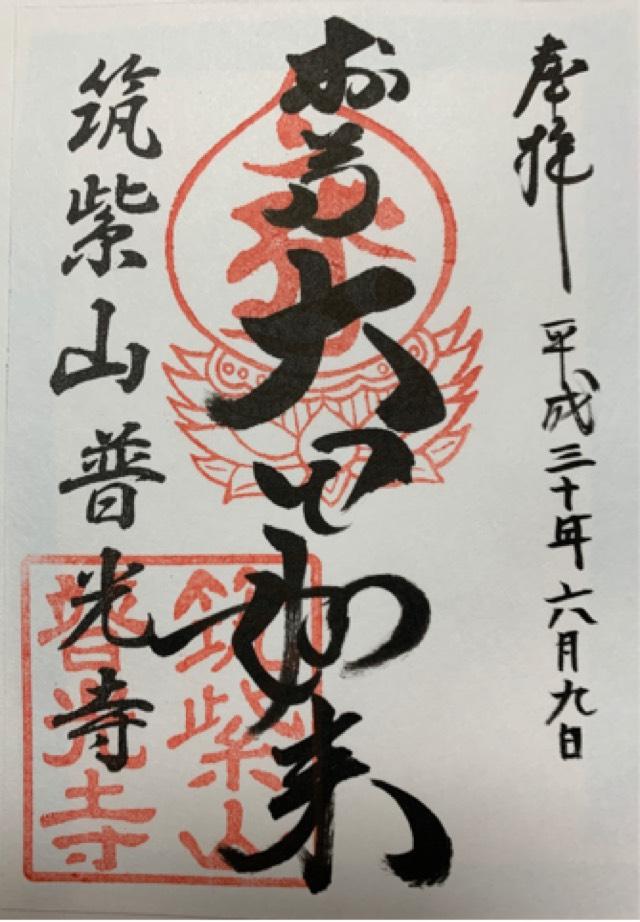 奉拝 平成三十年六月九日
大日如来
筑紫山普光寺
筑紫山
普光寺